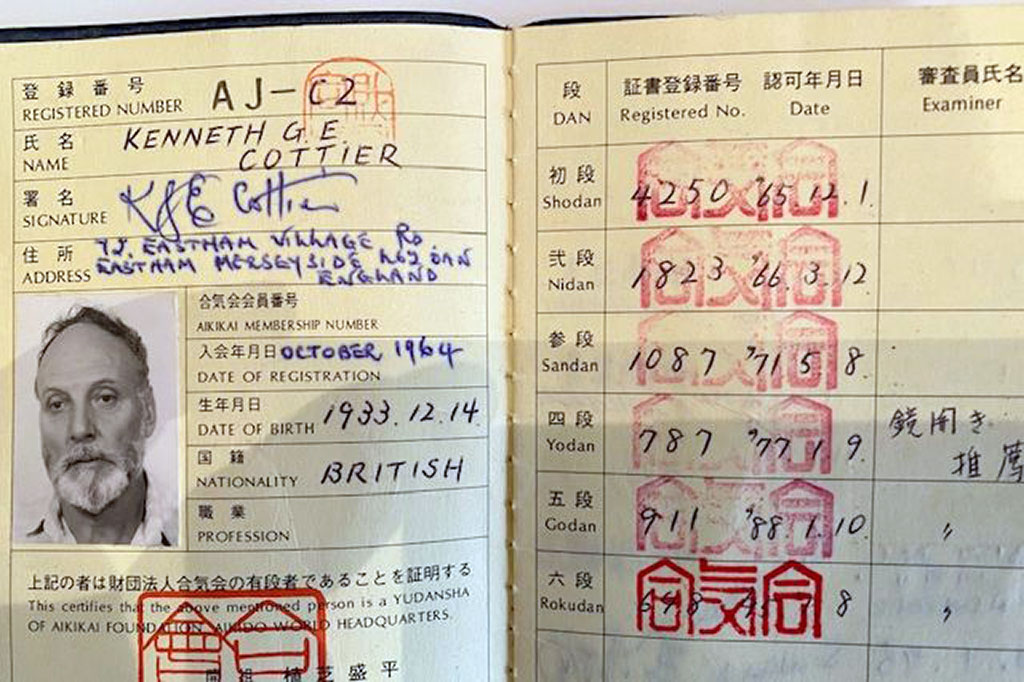 登録番号
REGISTERED NUMBER AJ-C2
氏名
NAME KENNETH G.E.
COTTIER
署名
SIGNATURE KGE Cottier
住所
ADDRESS EASTHAM VILLAGE RD.
EASTHAM MERSEYSIDE
ENGLAND
合気会会員番号
AIKIKAI MEMBERSHIP NUMBER
入会年月日 OCTOBER 1964
DATE OF REGISTRATION
生年月日
DATE OF BIRTH 1933.12.14
国籍
NATIONALITY BRITISH
職業
PROFESSION
上記の者は財団法人合気会の有段者であることを証明する
This certifies that the above mentioned person is a YUDANSHA
OF AIKIKAI FOUNDATION, AIKIDO WORLD HEADQUARTERS.
植芝盛平
段 証書登録番号 認可年月日 審査員氏名
DAN Registered No. Date Examiner
初段
Shodan 4250 '65.12.1.
弐段
Nidan 1823 '66.3.12
参段
Sandan 1087 '71 5 8.
四段 鏡開き
Yodan 787 '77 1 9. 推薦
五段
Godan 911 '88.1.10 〃
六段
Rokudan 698 8 〃
合気会